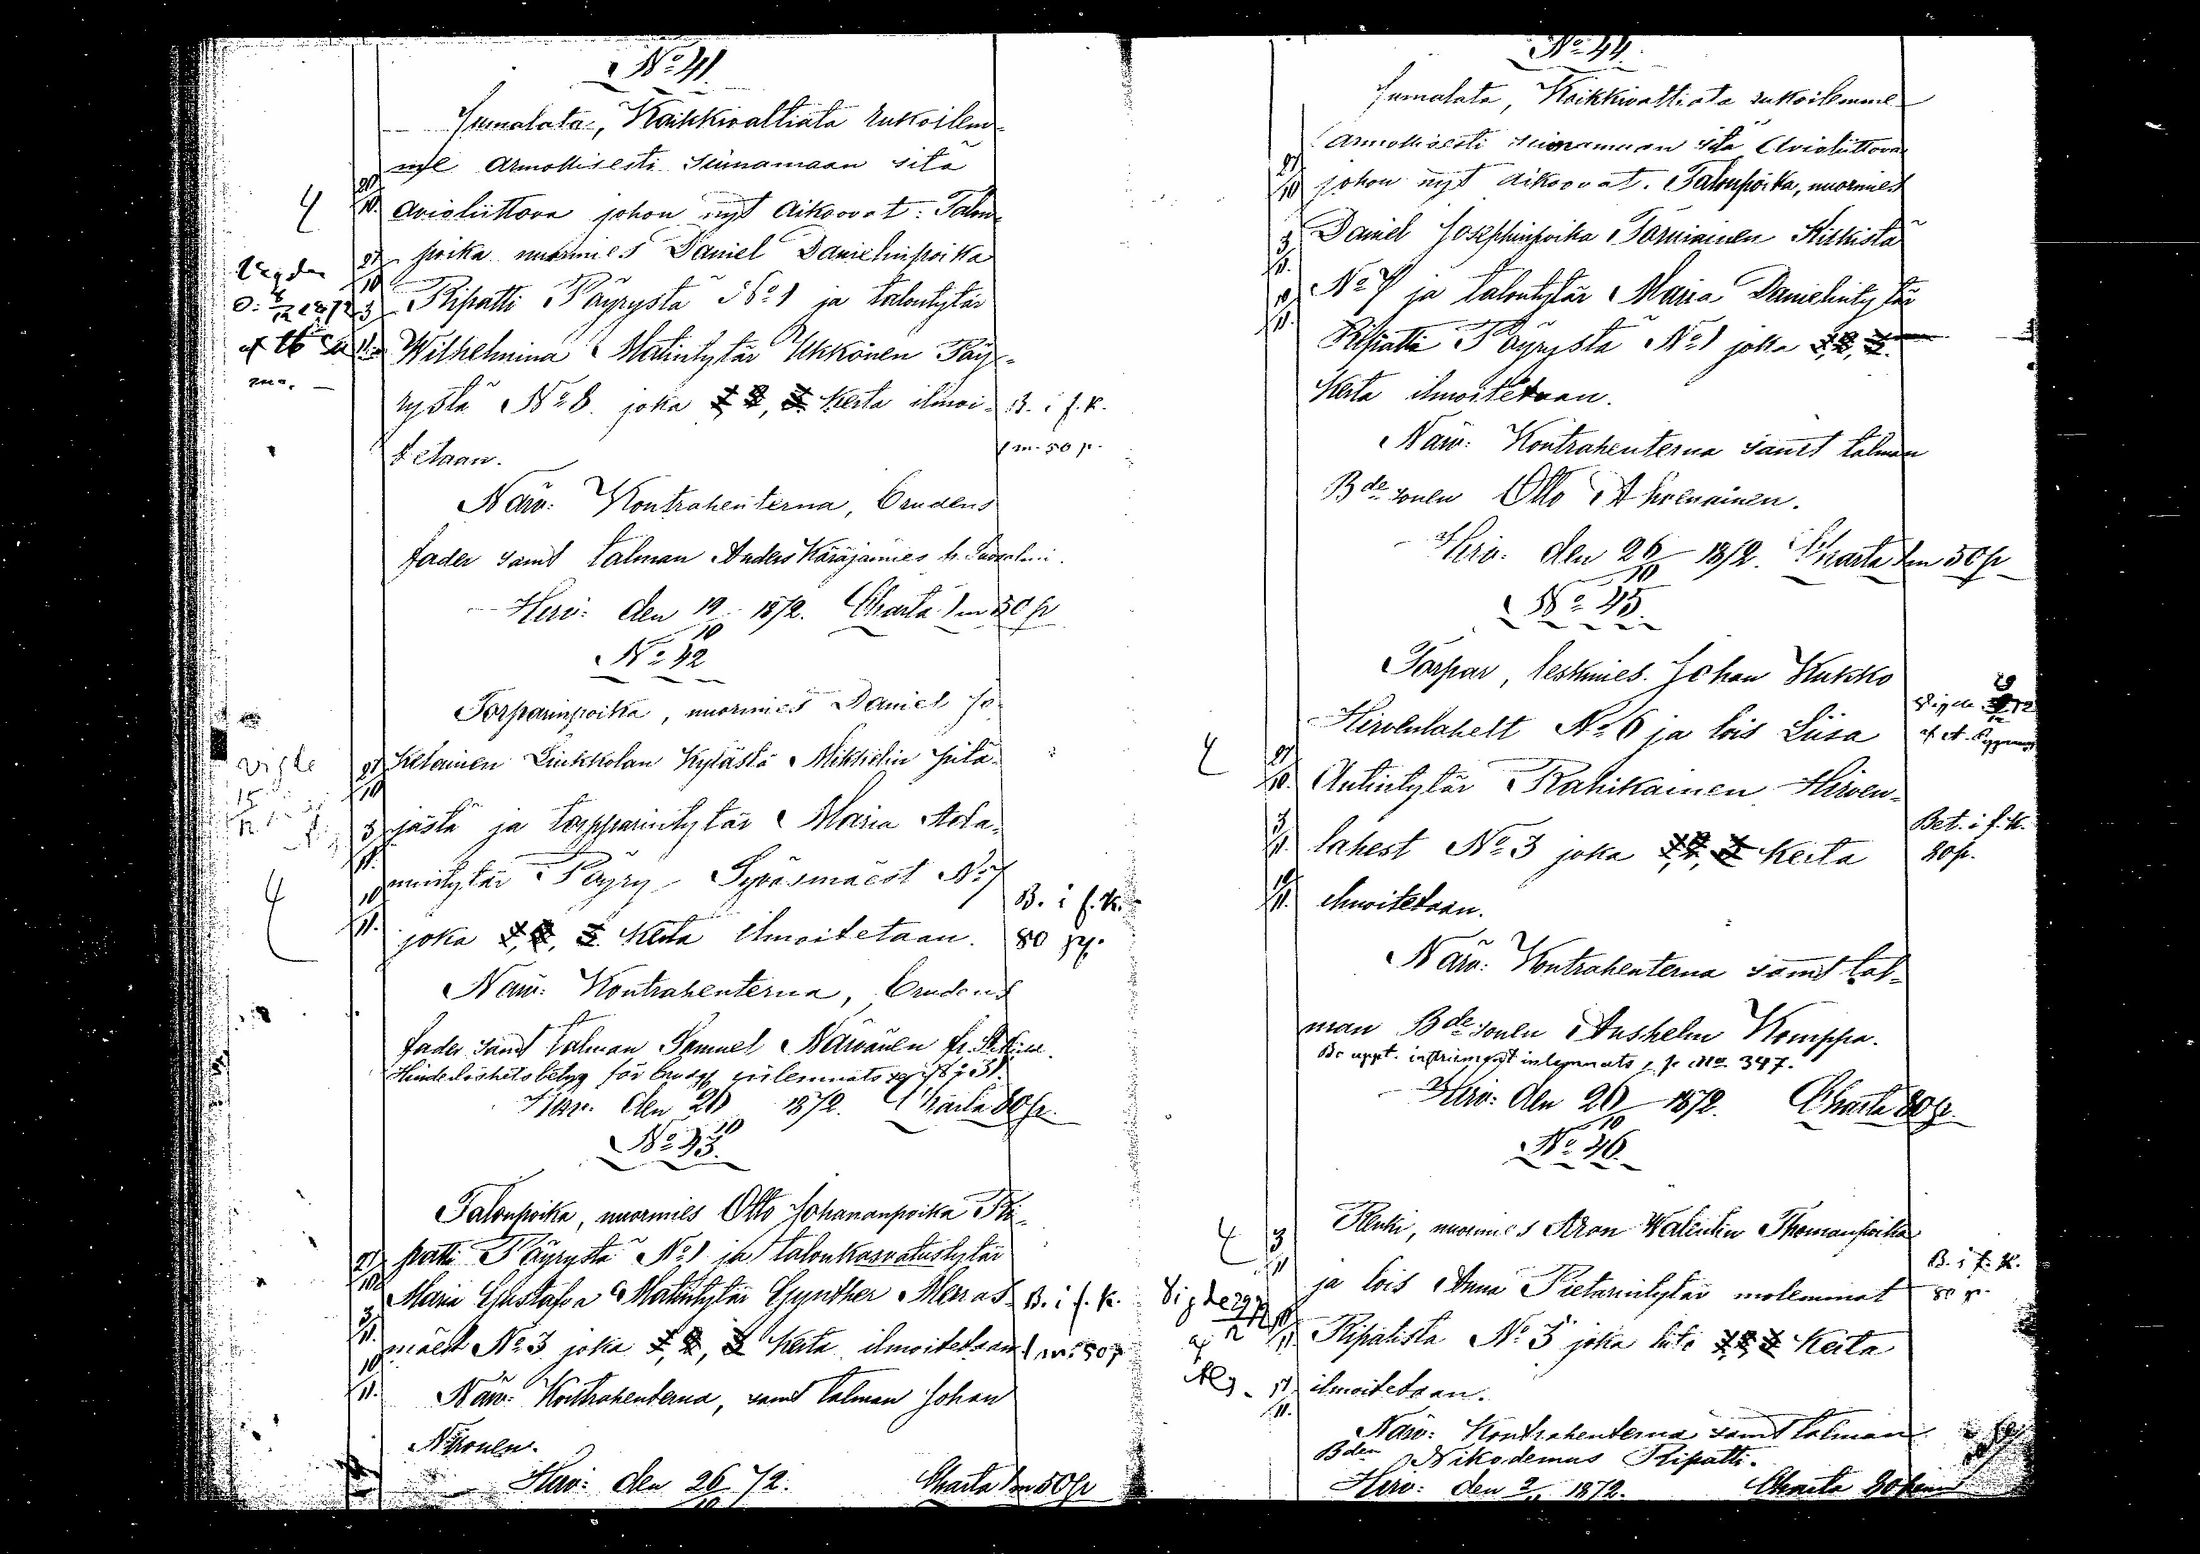 No 41.
Jumalata, Kaikkivaltiata rukoilem-
me armollisesti siunamaan sitä
avioliittova johon nyt aikoovat: Talon-
poika nuormies Daniel Danielinpoika
Ripatti Päyrystä No 1 ja talontytär
Wilhelmina Matintytär Ukkonen Päy-
rystä No 8. joka 1, 2, 3 kerta ilmoi-
tetaan.
B. i f. K.
1 m. 50 p.
Närv: Kontrahenterna, brudens
fader samt talman Anders Käräjämies
Hirv: den 19/10 1872. Charta 1 m 50 p
No 42
Torparinpoika, nuormies Daniel Jo-
kelainen Liukkolan kylästä Mikkelin pitä-
jästä ja torpparintytär Maria Ada-
mintytär Päyry Syväsmäest No 7
joka 1, 2, 3 kerta ilmoitetaan.
B. i f. K.
80 p.
Närv: Kontrahenterna, brudens
fader samt talman Samuel Närvänen
Hinderlöshetsbetyg för brudg inlemnats
Hirv: den 20/10 1872. Charta 80 p.
No 43.
Talonpoika, nuormies Otto Johananpoika Ri-
patti Päyrystä No 1 ja talonkasvatustytär
Maria Gustafva Matintytär Gynther Marras-
mäest No 3 joka 1, 2, 3 kerta ilmoitetaan
B. i f. K.
1 m: 50 p
Närv: Kontrahenterna, samt talman Johan
Nironen.
Hirv: den 26/10 72. Charta 1 m 50 p
No 44.
Jumalata, Kaikkivaltiata rukoilemme
armollisesti siunamaan sitä avioliittova
johon nyt aikoovat. Talonpoika, nuormies
Daniel Josephinpoika Törniainen Kitkistä
No 7 ja talontytär Maria Danielintytär
Ripatti Päyrystä No 1 joka 1, 2, 3.
kerta ilmoitetaan.
Närv: Kontrahenterna samt talman
Bde sonen Otto
Hirv: den 26/10 1872. Charta 1 m 50 p
No 45.
Torpar, leskmies. Johan Kukko
Hirvenlahelt No 6 ja lois Liisa
Antintytär Rahikainen Hirven-
lahest No 3 joka 1, 2, 3 kerta
ilmoitetaan.
Bet. i f. K.
80 p.
Närv: Kontrahenterna samt tal-
man Bde sonen Anshelm Komppa.
Bo uppt. instrument inlemnats No 347.
Hirv: den 20/10 1872. Charta 80 p.
No 46.
Renki, nuormies Aron Walentin Thomanpoika
ja lois Anna Pietarintytär molemmat
Ripatista No 5 joka 1, 2, 3 kerta
ilmoitetaan.
B. i f. K.
80 p.
Närv: Kontrahenterna samt talman
Bden Nikodemus Ripatti.
Hirv: den 2/11 1872. Charta 80 penni